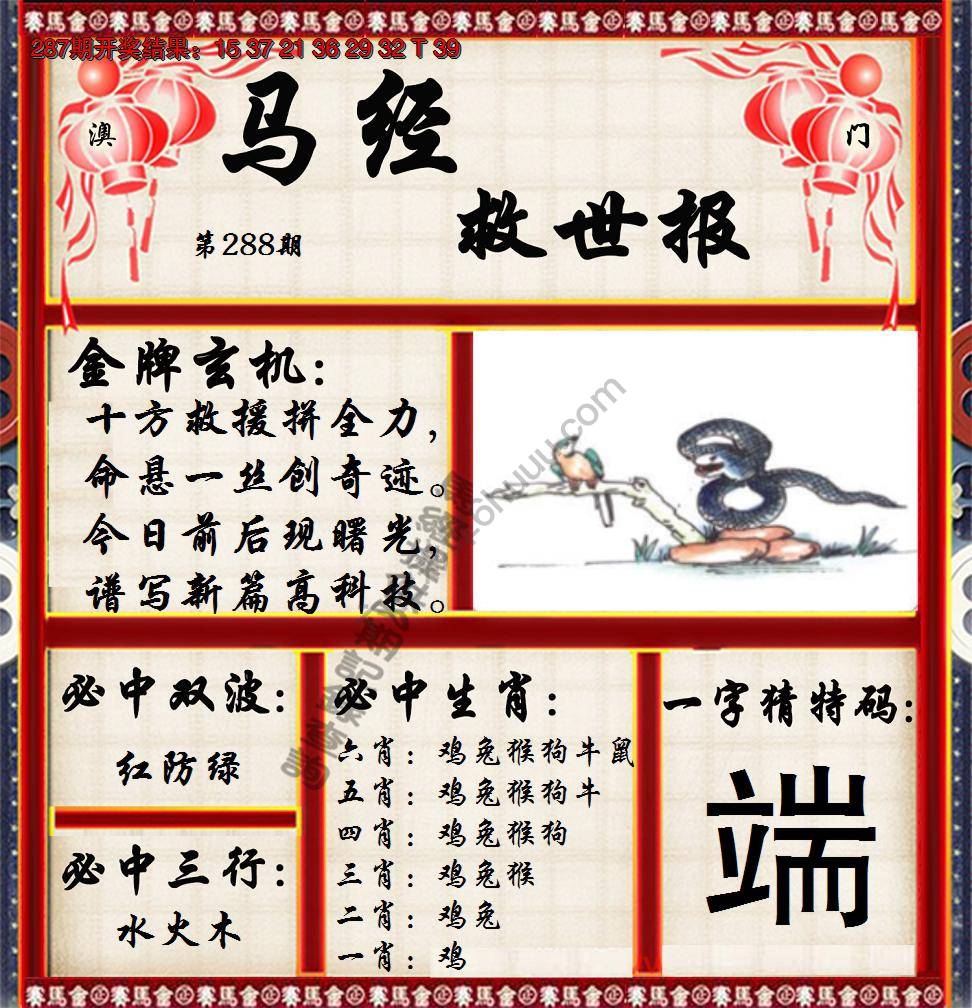 287期开奖结果：15 37 21 36 29 32 T 39
澳
门
马经
救世报
第288期
金牌玄机：
十方救援拼全力，
命悬一丝创奇迹。
今日前后现曙光，
谱写新篇高科技。
必中双波：
红防绿
必中三行：
水火木
必中生肖：
六肖：鸡兔猴狗牛鼠
五肖：鸡兔猴狗牛
四肖：鸡兔猴狗
三肖：鸡兔猴
二肖：鸡兔
一肖：鸡
一字猜特码：
端